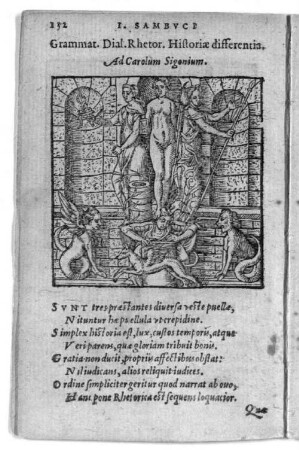 152 I. SAMBVCI
Grammat. Dial. Rhetor. Historiæ differentia.
Ad Carolum Sigonium.
SVNT tres præstantes diversa veste puellæ,
Nituntur hæ puellula crepidine.
Simplex historia est, lux, custos temporis, atque
Veri parens, quæ gloriam tribuit bonis.
Gratia non ducit, propriis affectibus obstat:
Nil iudicans, alios reliquit iudices.
Ordine simpliciter geritur quod narrat ab ovo,
Hanc pone Rhetorica est sequens loquacior.
Quæ